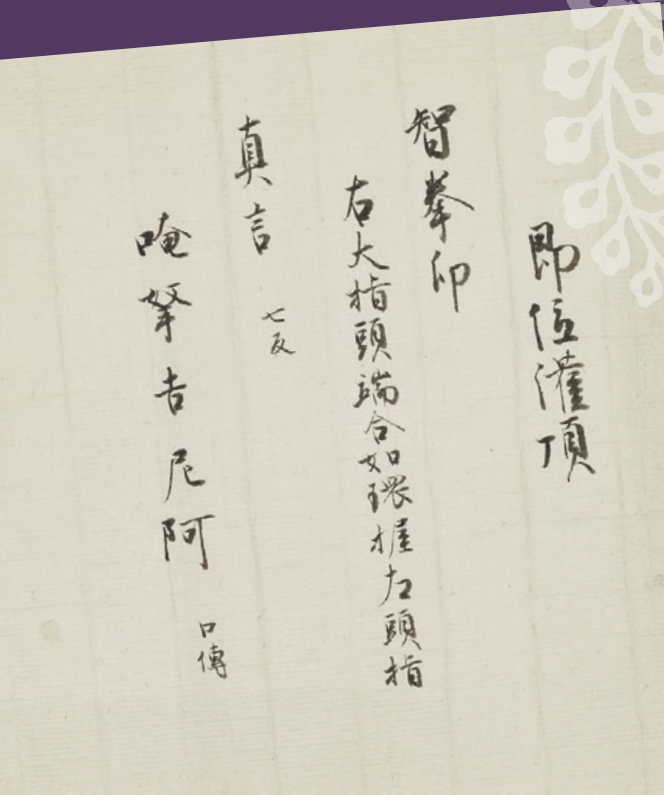 即位灌頂
智拳印
右大指頭端合如環握左頭指
真言 七反
唵拏吉尼阿 口傳